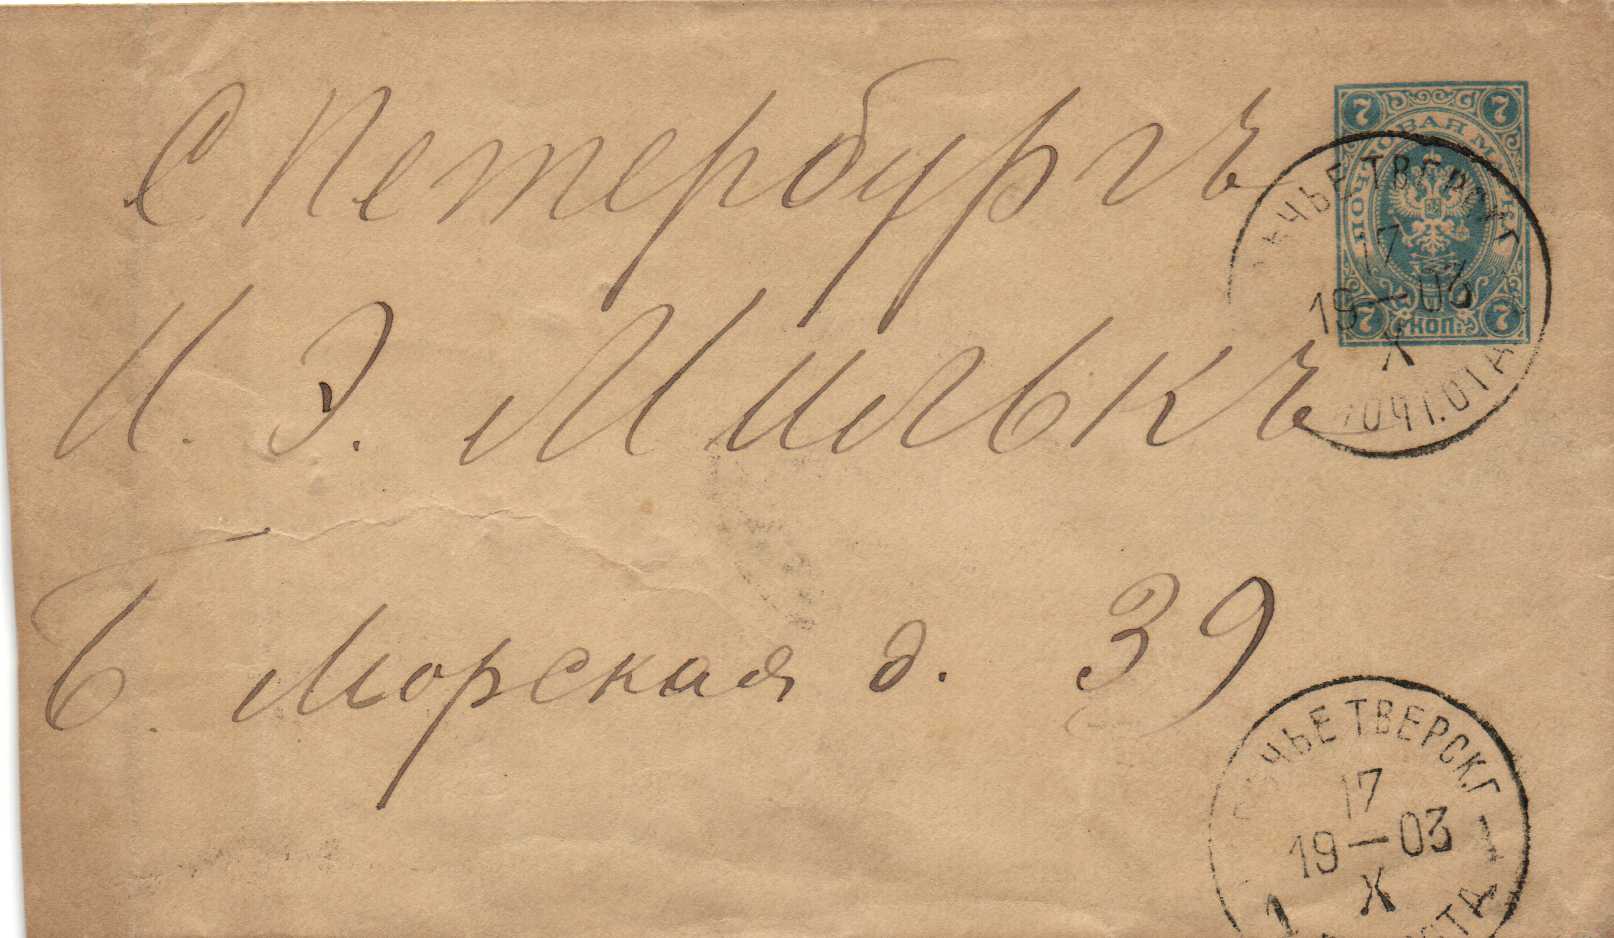 СПетербургъ
И. Э. Милькъ
Б. Морская д. 39
7 7
ПОЧТОВАЯ МАРКА
7 КОП. 7
ТВЕРСК.Г
17
19—03
X
ПОЧТ.ОТД
ТВЕРСК.Г
17
19—03
X
1 1